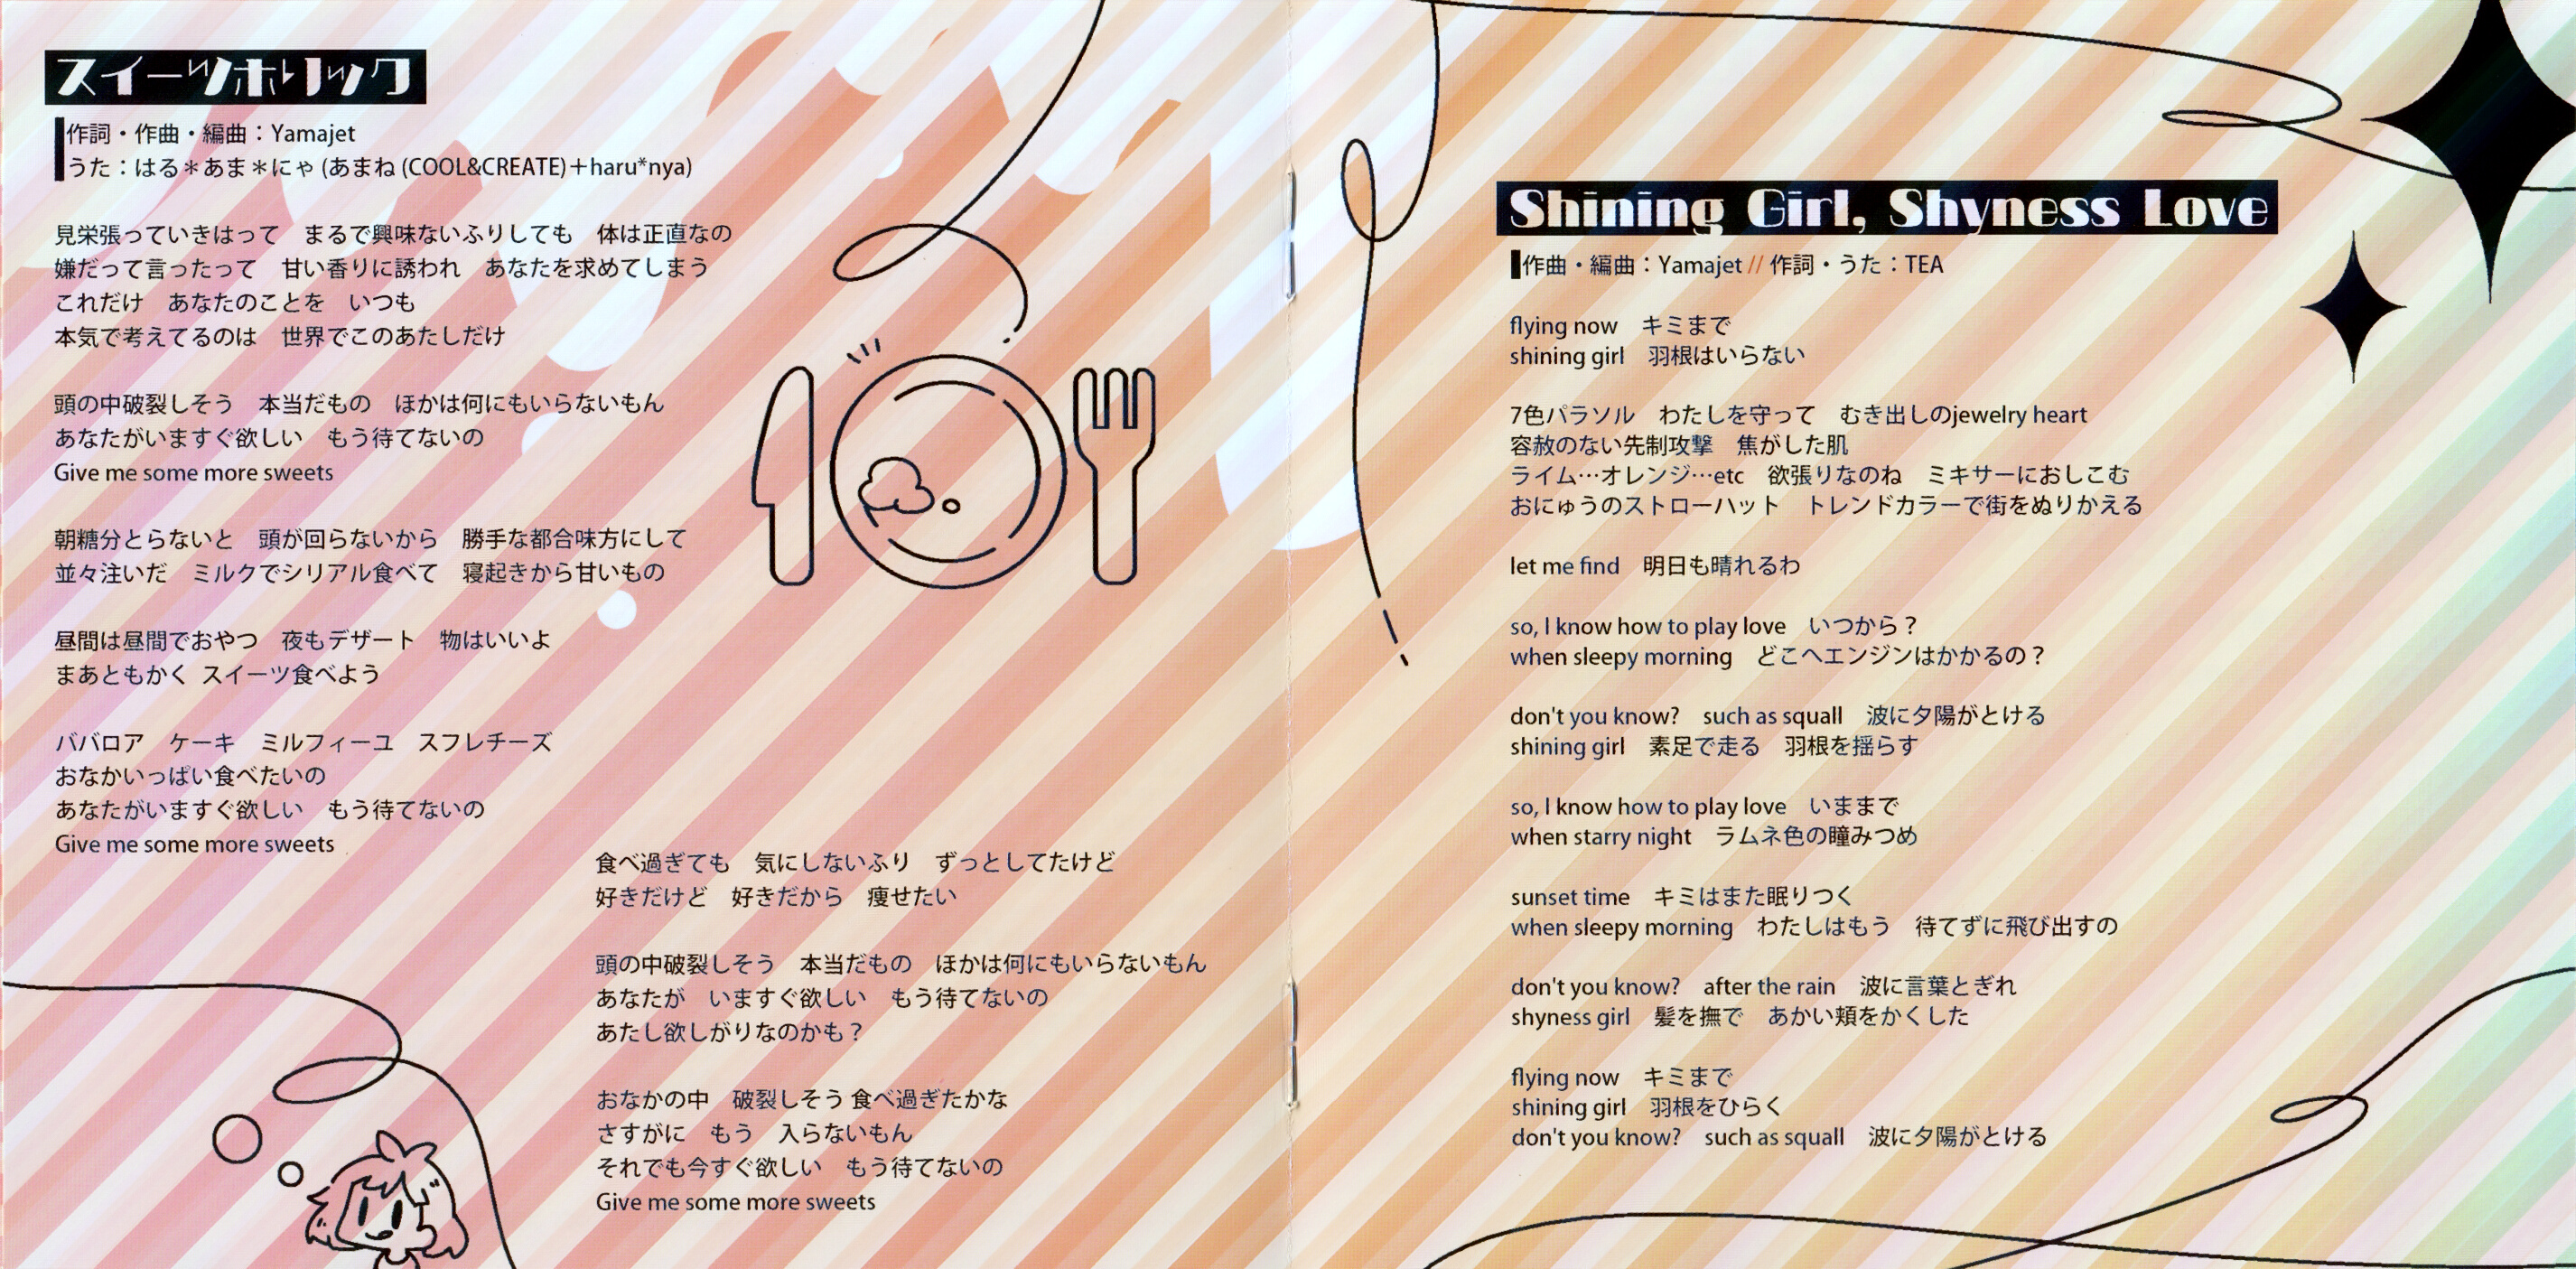 スイーツホリック
作詞・作曲・編曲：Yamajet
うた：はる＊あま＊にゃ (あまね (COOL&CREATE)＋haru*nya)
見栄張っていきはって　まるで興味ないふりしても　体は正直なの
嫌だって言ったって　甘い香りに誘われ　あなたを求めてしまう
これだけ　あなたのことを　いつも
本気で考えてるのは　世界でこのあたしだけ
頭の中破裂しそう　本当だもの　ほかは何にもいらないもん
あなたがいますぐ欲しい　もう待てないの
Give me some more sweets
朝糖分とらないと　頭が回らないから　勝手な都合味方にして
並々注いだ　ミルクでシリアル食べて　寝起きから甘いもの
昼間は昼間でおやつ　夜もデザート　物はいいよ
まあともかく スイーツ食べよう
ババロア　ケーキ　ミルフィーユ　スフレチーズ
おなかいっぱい食べたいの
あなたがいますぐ欲しい　もう待てないの
Give me some more sweets
食べ過ぎても　気にしないふり　ずっとしてたけど
好きだけど　好きだから　痩せたい
頭の中破裂しそう　本当だもの　ほかは何にもいらないもん
あなたが　いますぐ欲しい　もう待てないの
あたし欲しがりなのかも？
おなかの中　破裂しそう 食べ過ぎたかな
さすがに　もう　入らないもん
それでも今すぐ欲しい　もう待てないの
Give me some more sweets
Shining Girl, Shyness Love
作曲・編曲：Yamajet // 作詞・うた：TEA
flying now　キミまで
shining girl　羽根はいらない
7色パラソル　わたしを守って　むき出しのjewelry heart
容赦のない先制攻撃　焦がした肌
ライム…オレンジ…etc　欲張りなのね　ミキサーにおしこむ
おにゅうのストローハット　トレンドカラーで街をぬりかえる
let me find　明日も晴れるわ
so, I know how to play love　いつから？
when sleepy morning　どこへエンジンはかかるの？
don't you know?　such as squall　波に夕陽がとける
shining girl　素足で走る　羽根を揺らす
so, I know how to play love　いままで
when starry night　ラムネ色の瞳みつめ
sunset time　キミはまた眠りつく
when sleepy morning　わたしはもう　待てずに飛び出すの
don't you know?　after the rain　波に言葉とぎれ
shyness girl　髪を撫で　あかい頬をかくした
flying now　キミまで
shining girl　羽根をひらく
don't you know?　such as squall　波に夕陽がとける